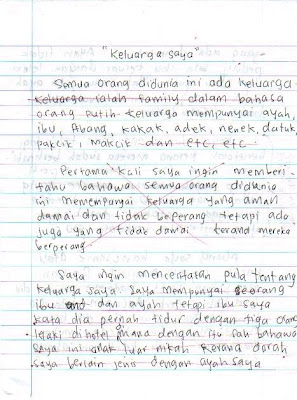 "Keluarga saya"
Semua orang didunia ini ada keluarga
keluarga ialah family dalam bahasa
orang putih keluarga mempunyai ayah,
ibu, Abang, kakak, adek, nenek, datuk,
pakcik, makcik dan etc, etc
Pertama kali saya ingin memberi
tahu bahawa semua orang didunia
ini memempunyai keluarga yang aman
damai dan tidak beperang tetapi ada
juga yang tidak damai kerana mereka
berperang
Saya ingin menceritakan pula tentang
keluarga saya. Saya mempunyai seorang
ibu dan ayah tetapi ibu saya
kata dia pernah tidur dengan tiga orang
lelaki dihotel mana dengan itu sah bahawa
saya ini anak luar nikah kerana darah
saya berlain jenis dengan ayah saya